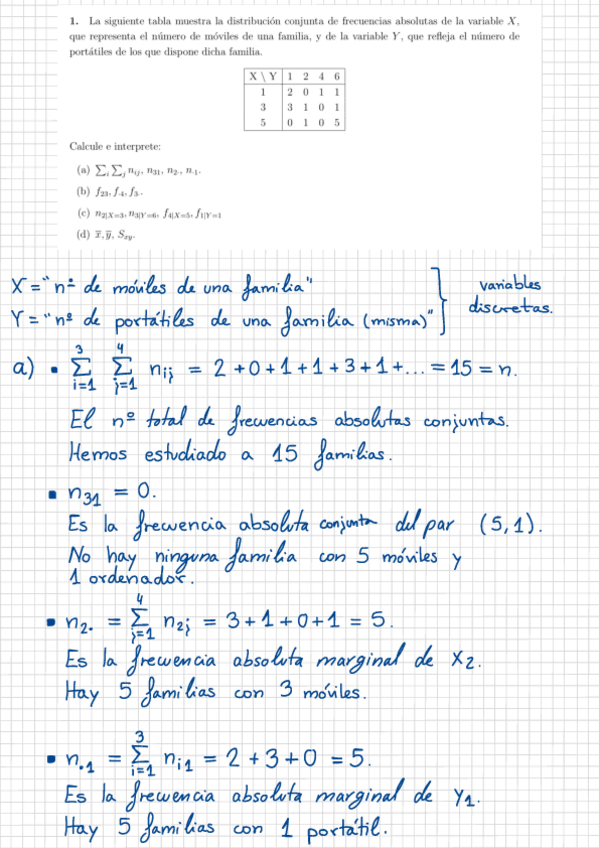 1. La siguiente tabla muestra la distribución conjunta de frecuencias absolutas de la variable X,
que representa el número de móviles de una familia, y de la variable Y, que refleja el número de
portátiles de los que dispone dicha familia.
X \ Y 1 2 4 6
1 2 0 1 1
3 3 1 0 1
5 0 1 0 5
Calcule e interprete:
(a) ∑ᵢ ∑ⱼ nᵢⱼ, n₃₁, n₂., n.₁.
(b) f₂₃, f.₄, f₃..
(c) n₂|X=3, n₃|Y=6, f₄|X=5, f₁|Y=1
(d) x̅, y̅, Sxy.
X = "nº de móviles de una familia"
Y = "nº de portátiles de una familia (misma)"
variables
discretas.
a) • ∑ᵢ₌₁³ ∑ⱼ₌₁⁴ nᵢⱼ = 2+0+1+1+3+1+... = 15 = n.
El nº total de frecuencias absolutas conjuntas.
Hemos estudiado a 15 familias.
▪ n₃₁ = 0.
Es la frecuencia absoluta conjunta del par (5,1).
No hay ninguna familia con 5 móviles y
1 ordenador.
• n₂. = ∑ⱼ₌₁⁴ n₂ⱼ = 3+1+0+1 = 5.
Es la frecuencia absoluta marginal de x₂.
Hay 5 familias con 3 móviles.
• n.₁ = ∑ᵢ₌₁³ nᵢ₁ = 2+3+0 = 5.
Es la frecuencia absoluta marginal de y₁.
Hay 5 familias con 1 portátil.